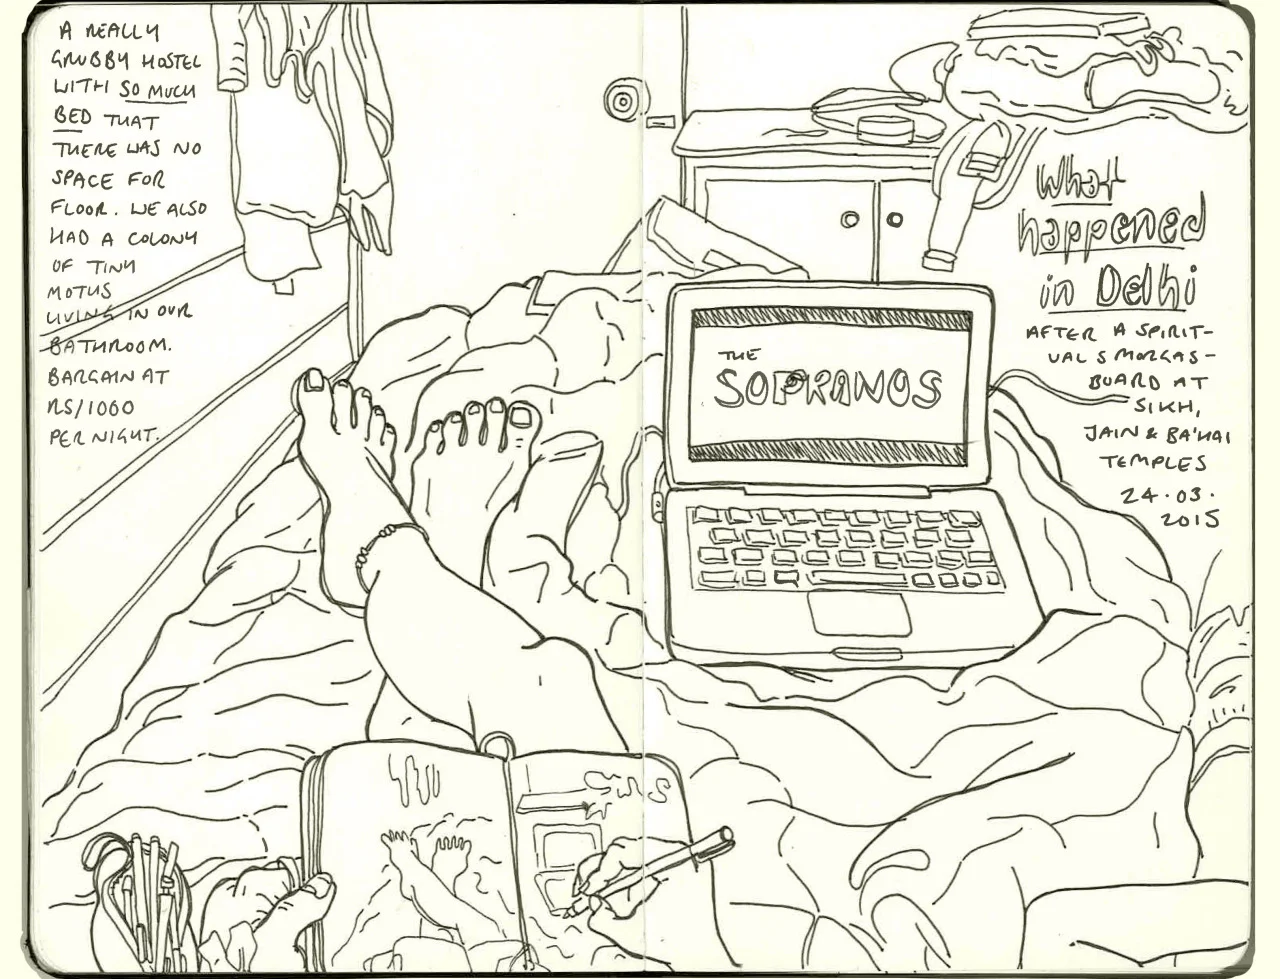 A REALLY
GRUBBY HOSTEL
WITH SO MUCH
BED THAT
THERE WAS NO
SPACE FOR
FLOOR. WE ALSO
HAD A COLONY
OF TINY
MOTHS
LIVING IN OUR
BATHROOM.
BARGAIN AT
RS/1000
PER NIGHT.
THE
SOPRANOS
What
happened
in Delhi
AFTER A SPIRIT-
UAL SMORGAS-
BOARD AT
SIKH,
JAIN & BA'HAI
TEMPLES
24.03.
2015